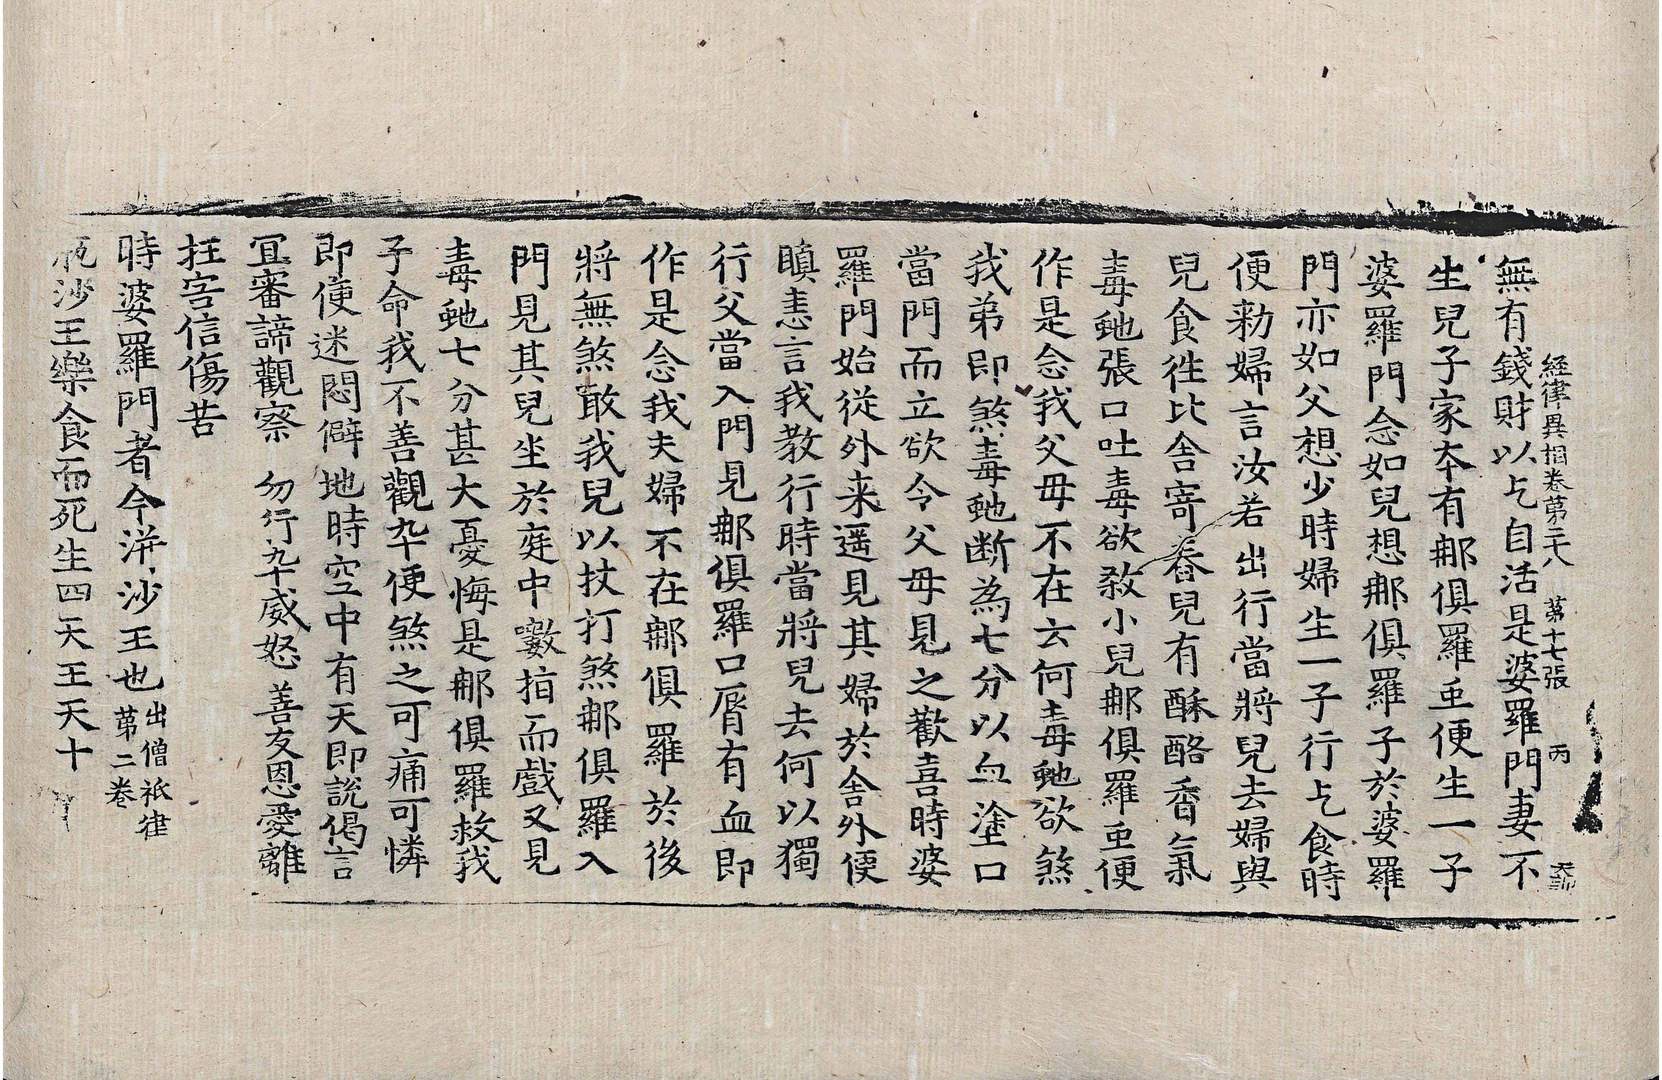 經律異相卷第二十八 第十七張 丙
無有錢財以乞自活是婆羅門妻不
生兒子家夲有𨚗俱羅垂便生一子
婆羅門念如兒想𨚗俱羅子於婆羅
門亦如父想少時婦生一子行乞食時
便勑婦言汝若出行當將兒去婦與
兒食徃比舍寄舂兒有酥酪香氣
毒虵張口吐毒欲煞小兒𨚗俱羅垂便
作是念我父母不在云何毒虵欲煞
我弟即煞毒虵断為七分以血塗口
當門而立欲令父母見之歡喜時婆
羅門始從外来遥見其婦於舍外便
瞋恚言我教行時當將兒去何以獨
行父當入門見𨚗俱羅口脣有血即
作是念我夫婦不在𨚗俱羅於後
將無煞敢我兒以杖打煞𨚗俱羅入
門見其兒坐於庭中㘌指而戲又見
毒虵七分甚大憂悔是𨚗俱羅救我
子命我不善觀卒便煞之可痛可憐
即便迷悶僻地時空中有天即說偈言
冝審諦觀察 勿行卒威怒 善友恩愛離
抂害信傷苦
時婆羅門者今洴沙王也出僧祇律第二卷
瓶沙王樂食而死生四天王天十